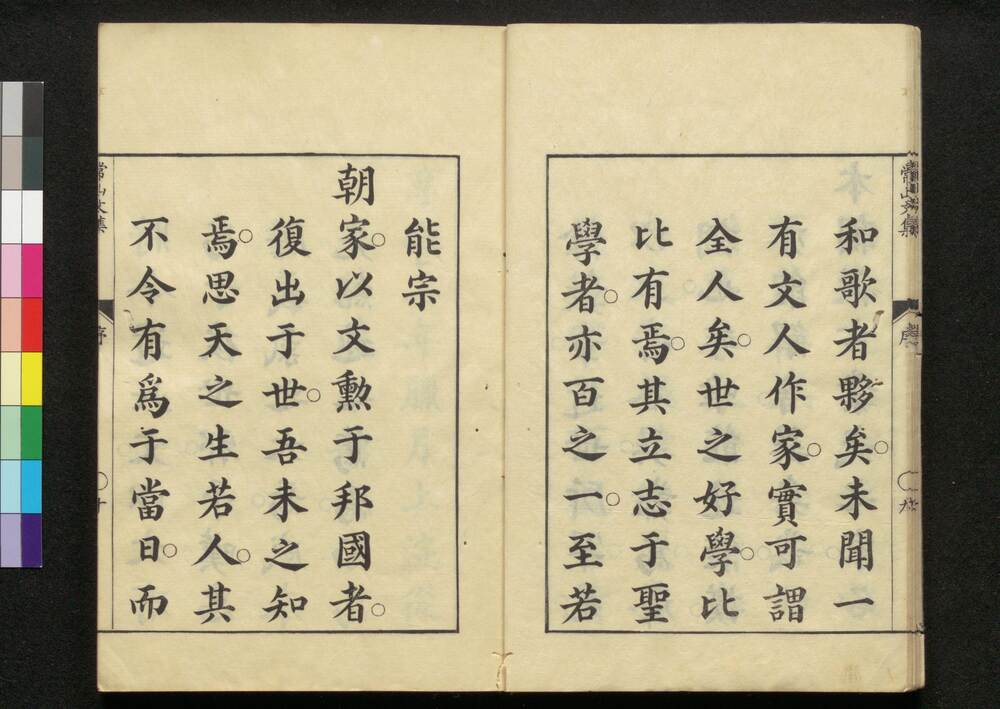 和歌者夥矣。未聞一
有文人作家。實可謂
全人矣。世之好學。比
比有焉。其立志于聖
學者。亦百之一。至若
能宗
朝家。以文勲于邦國者。
復出于世。吾未之知
焉。思天之生若人。其
不令有爲于當日。而
常山文集
序